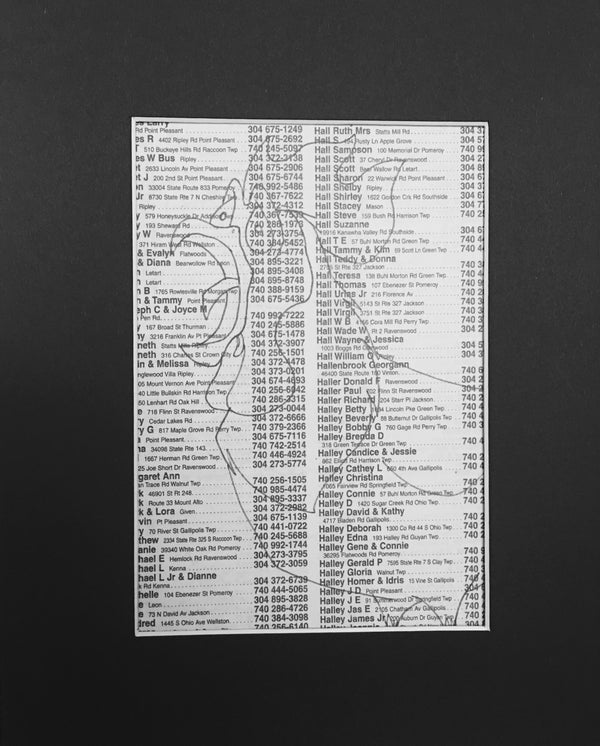 es Larry
Rd Point Pleasant 304 675-1249
es R 4402 Ripley Rd Point Pleasant 304 675-2692
510 Buckeye Hills Rd Raccoon Twp 740 245-5097
es W Bus Ripley 304 372-2138
2633 Lincoln Av Point Pleasant 304 675-2906
J 200 2nd St Point Pleasant 304 675-6744
33004 State Route 833 Pomeroy 740 992-5486
Jr 8730 State Rte 7 N Cheshire 740 367-7622
Ripley 304 372-4312
579 Honeysuckle Dr Addison 740 367-7539
193 Sheward Rd 740 286-1973
y W Ravenswood 304 273-3754
371 Hiram West Rd Wellston 740 384-5452
& Evalyn Flatwoods 304 273-4774
& Diana Bearwollow Rd Leon 304 895-3221
Letart 304 895-3408
Letart 304 895-8748
n B 1765 Rowlesville Rd Morgan Twp 740 388-9159
n & Tammy Point Pleasant 304 675-5436
eph C & Joyce M
Pen Rd 740 992-7222
y 167 Broad St Thurman 740 245-5886
3216 Franklin Av Pt Pleasant 304 675-1478
neth Statts Mills Ripley 304 372-3907
neth 316 Charles St Crown City 740 256-1501
in & Melissa Ripley 304 372-4478
nglewood Villa Ripley 304 373-0201
05 Mount Vernon Ave Point Pleasant 304 674-4693
40 Little Bullskin Rd Harrison Twp 740 256-6942
50 Lenhart Rd Oak Hill 740 286-2315
e 718 Flinn St Ravenswood 304 273-0044
y Cedar Lakes Rd 304 372-6666
y G 817 Maple Grove Rd Perry Twp 740 379-2366
Point Pleasant 304 675-7116
na 34098 State Rte 143 740 742-2514
1667 Herman Rd Green Twp 740 446-4924
25 Joe Short Dr Ravenswood 304 273-5774
garet Ann
an Trace Rd Walnut Twp 740 256-1505
k 46901 St Rt 248 740 985-4474
k Route 33 Mount Alto 304 895-3337
k & Lora Given 304 372-2982
vin Pt Pleasant 304 675-1139
y 70 River St Gallipolis Twp 740 441-0722
thew 2334 State Rte 325 S Raccoon Twp 740 245-5688
anie 39340 White Oak Rd Pomeroy 740 992-1744
ael E Hemlock Rd Ravenswood 304 273-3795
hael L Kenna 304 372-3059
hael L Jr & Dianne
k Rd Kenna 304 372-6739
helle 104 Ebenezer St Pomeroy 740 444-5065
e Leon 304 895-3828
e 73 N David Av Jackson 740 286-4726
dred 1445 S Ohio Ave Wellston 740 384-3098
740 256-6140
Hall Ruth Mrs Statts Mill Rd 304 37
Hall S Rusty Ln Apple Grove 304 57
Hall Sampson 100 Memorial Dr Pomeroy 740 99
Hall Scott 37 Cheryl Dr Ravenswood 304 27
Hall Scott Bear Wallow Rd Letart 304 8
Hall Sharon 22 Warwick St Gallipolis 304 6
Hall Shelby Ripley 304 37
Hall Shirley 1622 Gordon Crk Rd Southside 304 67
Hall Stacey Mason 304 7
Hall Steve 159 Bush Rd Harrison Twp 740 25
Hall Suzanne
10916 Kanawha Valley Rd Southside 304 67
Hall T E 57 Buhl Morton Rd Green Twp 740 4
Hall Tammy & Kim 69 Scott Ln Green Twp 740 4
Hall Teddy & Donna
2755 St Rte 327 Jackson 740 3
Hall Teresa 138 Buhl Morton Rd Green Twp 740 4
Hall Thomas 107 Ebenezer St Pomeroy 740 9
Hall Urias Jr 216 Florence Av 304
Hall Virgil 5143 St Rte 327 Jackson 740 3
Hall Virgil 3751 St Rte 327 Jackson 740 3
Hall W B 4166 Cora Mill Rd Perry Twp 740 3
Hall Wade W Rt 2 Ravenswood 304 2
Hall Wayne & Jessica
1003 Boggs Rd Glenwood 304 5
Hall William G Ripley 304 3
Hallenbrook Georgann
46400 State Route 160 Vinton 740 6
Haller Donald F Ravenswood 304 2
Haller Paul 702 Flinn St Ravenswood 304 2
Haller Richard 204 Starr Pl Jackson 740 2
Halley Betty 84 Lincoln Pke Green Twp 740 4
Halley Beverly 88 Butternut Dr Gallipolis 740 4
Halley Bobby G 760 Gage Rd Perry Twp 740 3
Halley Brenda D
318 Green Terrace Dr Green Twp 740 4
Halley Candice & Jessie
862 Elliott Rd Harrison Twp 740 2
Halley Cathey L 650 4th Ave Gallipolis 740 4
Halley Christina
7065 Fairview Rd Springfield Twp 740 4
Halley Connie 57 Buhl Morton Rd Green Twp 740 4
Halley D 1420 Sugar Creek Rd Ohio Twp 740 2
Halley David & Kathy
4717 Bladen Rd Gallipolis 740 2
Halley Deborah 1300 Co Rd 44 S Ohio Twp 740 2
Halley Edna 193 Halley Rd Guyan Twp 740 2
Halley Gene & Connie
36295 Flatwoods Rd Pomeroy 740 9
Halley Gerald P 7595 State Rte 7 S Clay Twp 740 2
Halley Gloria Walnut Twp 740 2
Halley Homer & Idris 15 Vine St Gallipolis 740 4
Halley J D Point Pleasant 304 6
Halley J E 91 Burtonwood Dr Springfield Twp 740 4
Halley Jas E 2105 Chatham Av Gallipolis 740 4
Halley James Jr 200 Auburn Dr Guyan Twp 740 2
Halley Jeannie 304